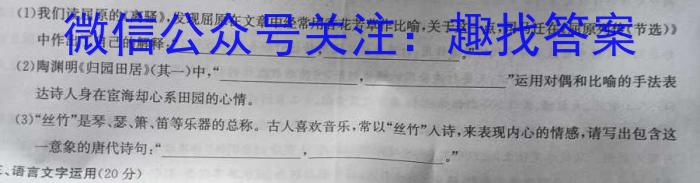 (1)我们读屈原的《离骚》,发现屈原在文章中经常用香花芳草作比喻,关于这一点,司马迁在《屈原列传(节选)》
微信公众号关注:趣找答案
中作出了自己的解释:
(2)陶渊明《归园田居》(其一)中,“ , ”运用对偶和比喻的手法表
达诗人身在宦海却心系田园的心情。
(3)“丝竹”是琴、瑟、箫、笛等乐器的总称。古人喜欢音乐,常以“丝竹”入诗,来表现内心的情感,请写出包含这
一意象的唐代诗句:“ , 。”
三、语言文字运用(20分)